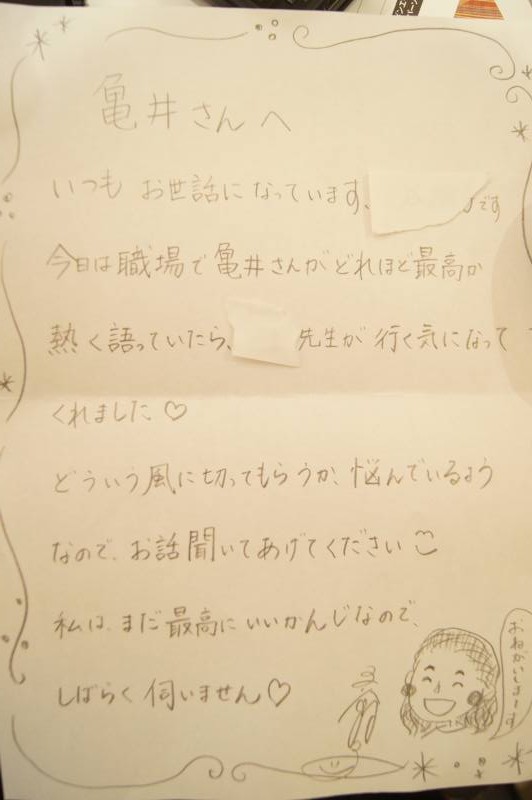 亀井さんへ
いつも お世話になっています、 です
今日は職場で亀井さんがどれほど最高か
熱く語っていたら、 先生が 行く気になって
くれました♡
どういう風に切ってもらうか、悩んでいるよう
なので、お話聞いてあげてください
私は、まだ最高にいいかんじなので、
しばらく伺いません♡
おねがいしまーす